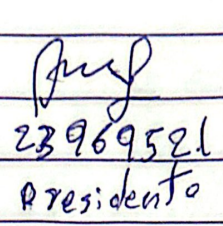 23969521
Presidente